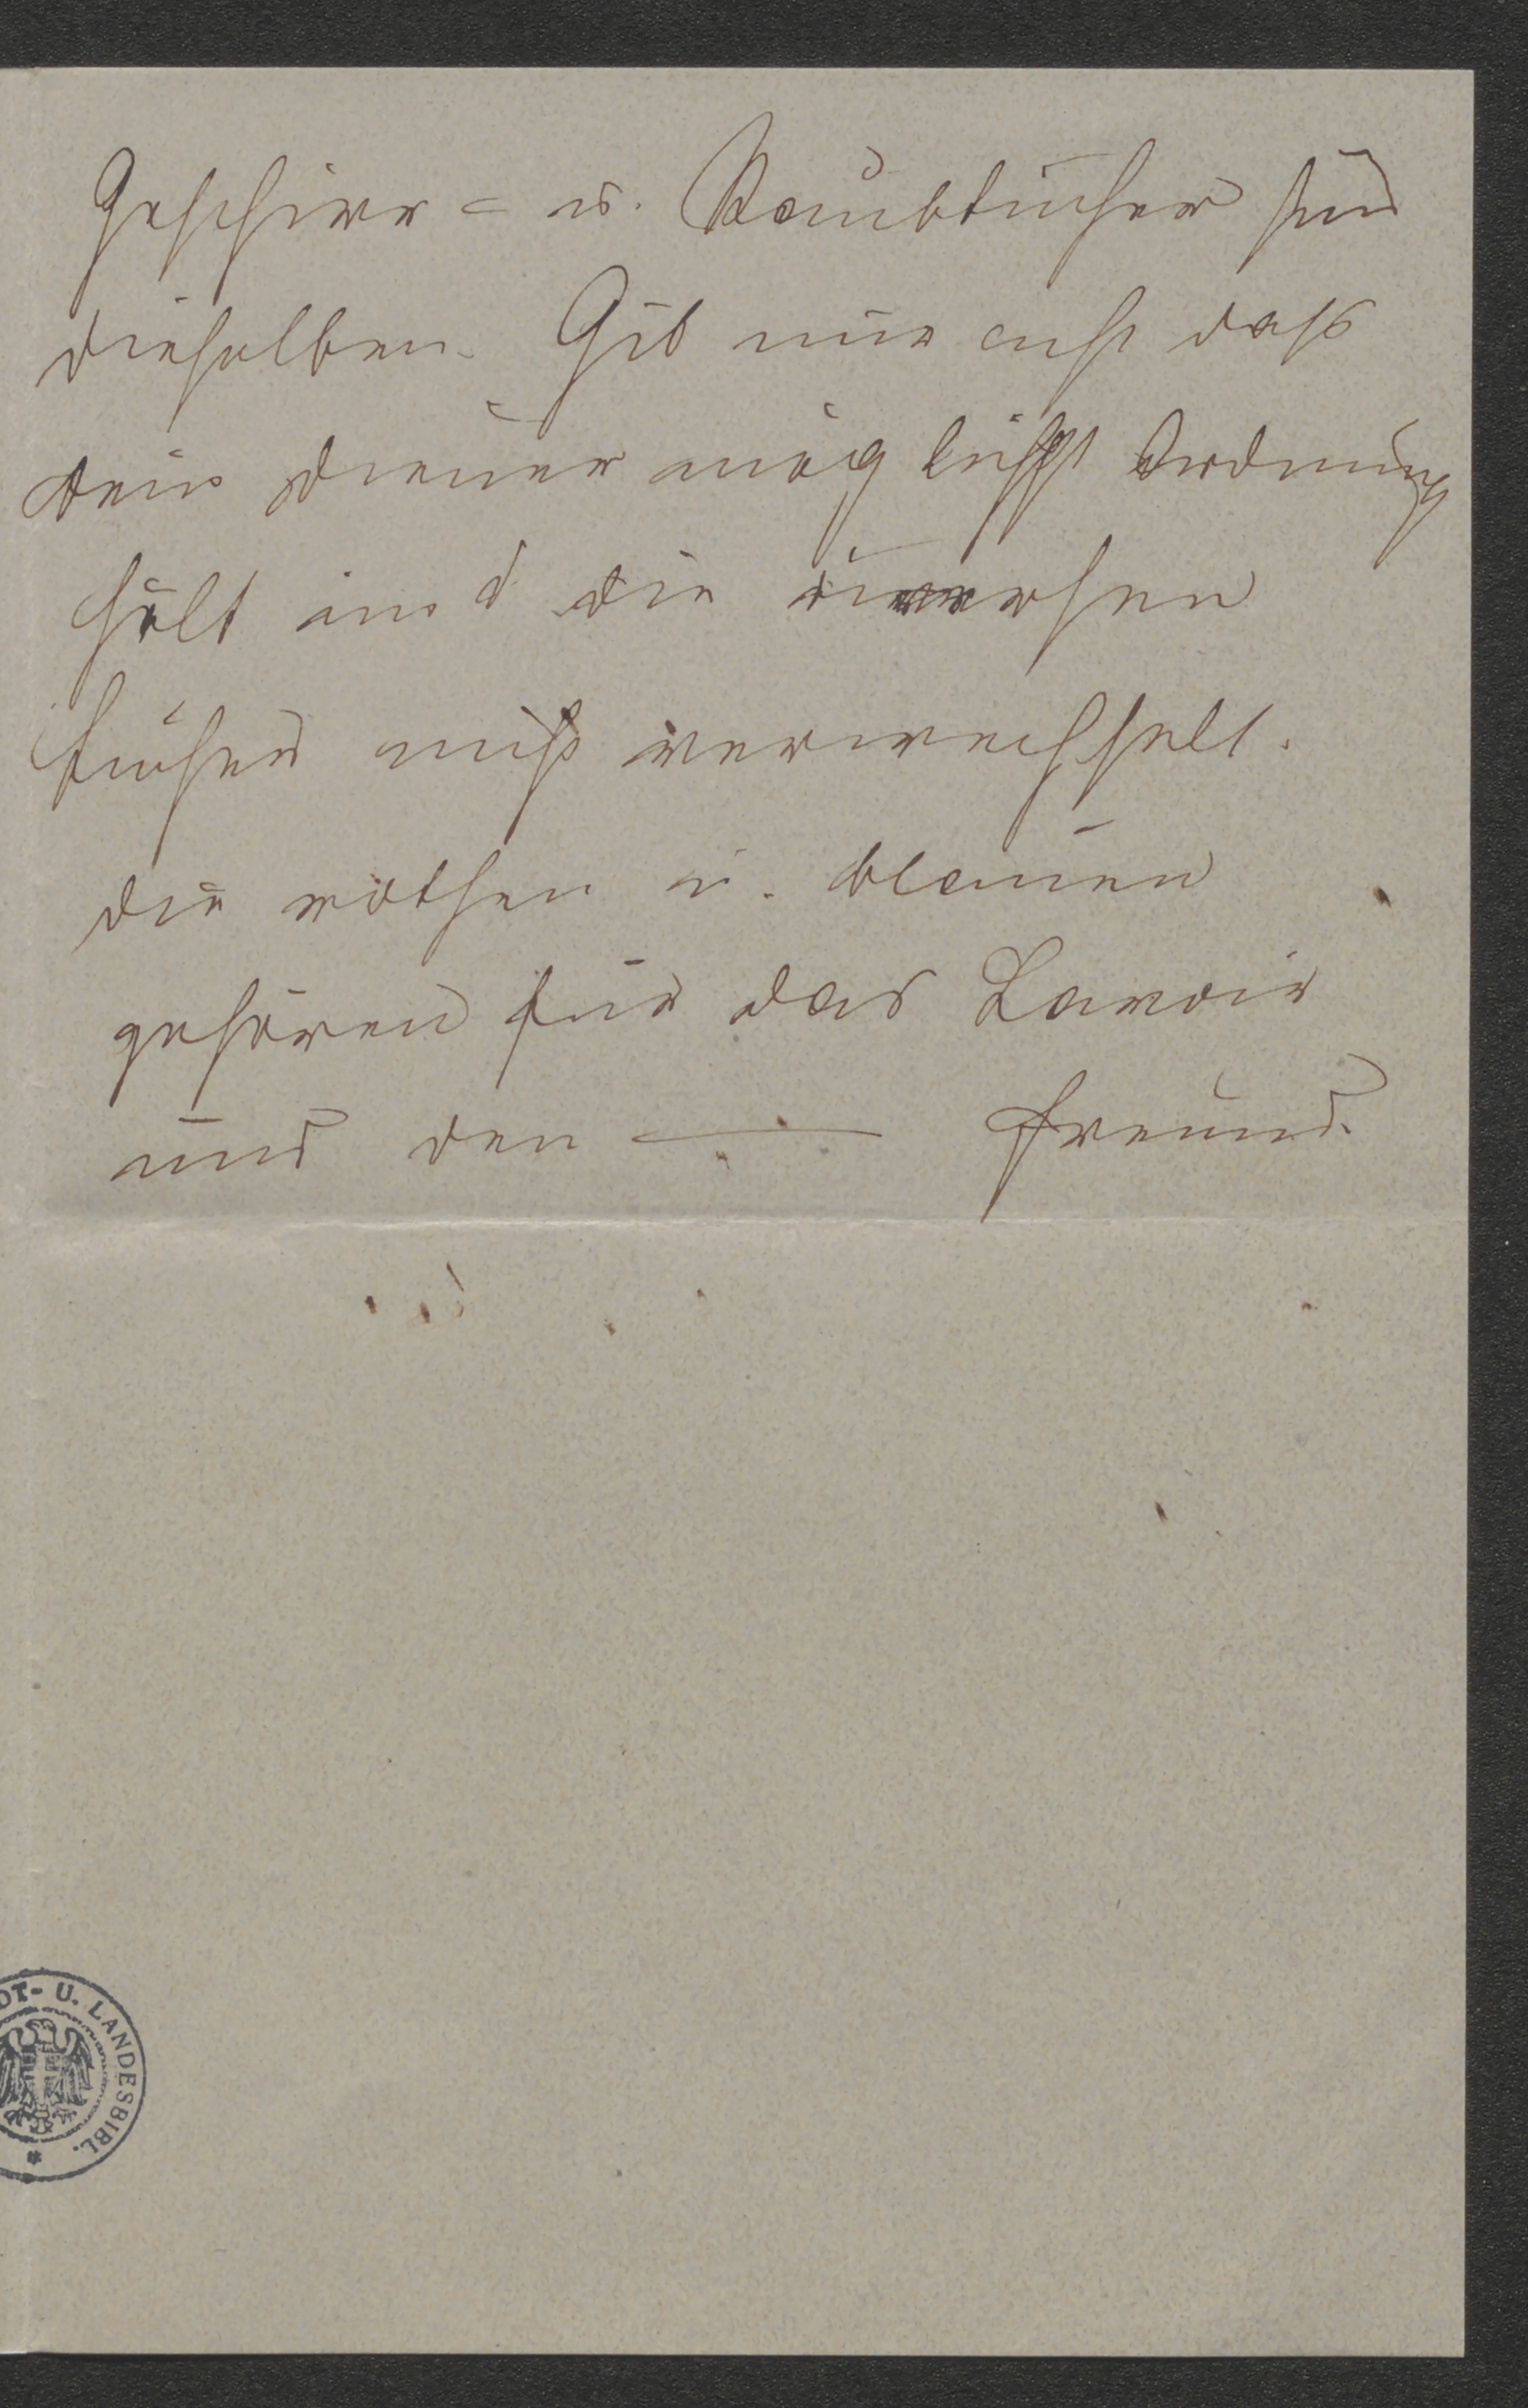 Geschirr- u. Staubtücher sind
dieselben. Gib nur acht daß
Dein Diener möglichst Ordnung
hält und die
Tücher nicht verwechselt.
die rothen u. blauen
gehören für das Lavoir
und den — Freund.
DT- U. LANDESBIBL.